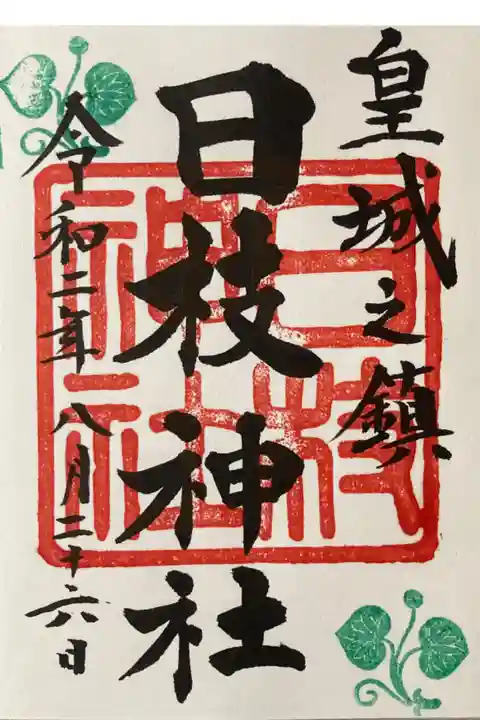 皇城之鎮
日枝神社
令和二年八月二十六日
日枝
神社